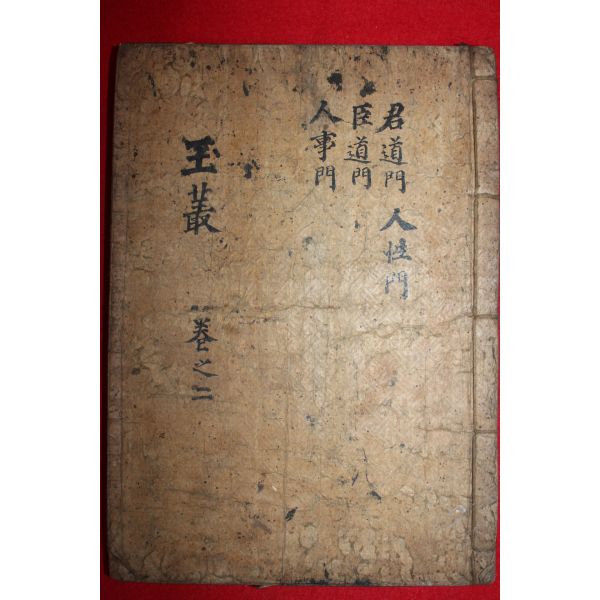 君道門 人性門
臣道門
人事門
玉叢 卷之二